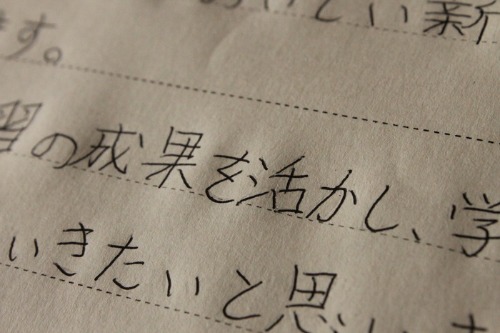 しい新
ます。
習の成果を活かし、学
いきたいと思いま